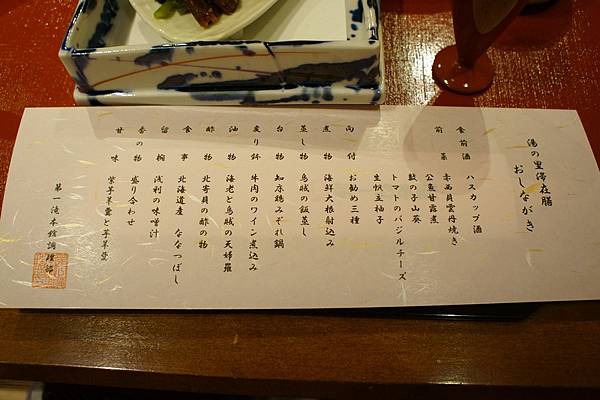 湯の里滞在膳
おしながき
食前酒　ハスカップ酒
前菜　赤西貝雲丹焼き
公魚甘露煮
数の子山葵
トマトのバジルチーズ
生帆立柚子
向付　お勧め三種
煮物　海鮮大根射込み
蒸し物　烏賊の飯蒸し
台物　知床鶏みぞれ鍋
炙り鉢　牛肉のワイン煮込み
油物　海老と烏賊の天婦羅
酢物　北寄貝の酢の物
食事　北海道産　ななつぼし
留椀　浅利の味噌汁
香の物　盛り合わせ
甘味　紫芋羊羹と芋羊羹
第一滝本館調理部